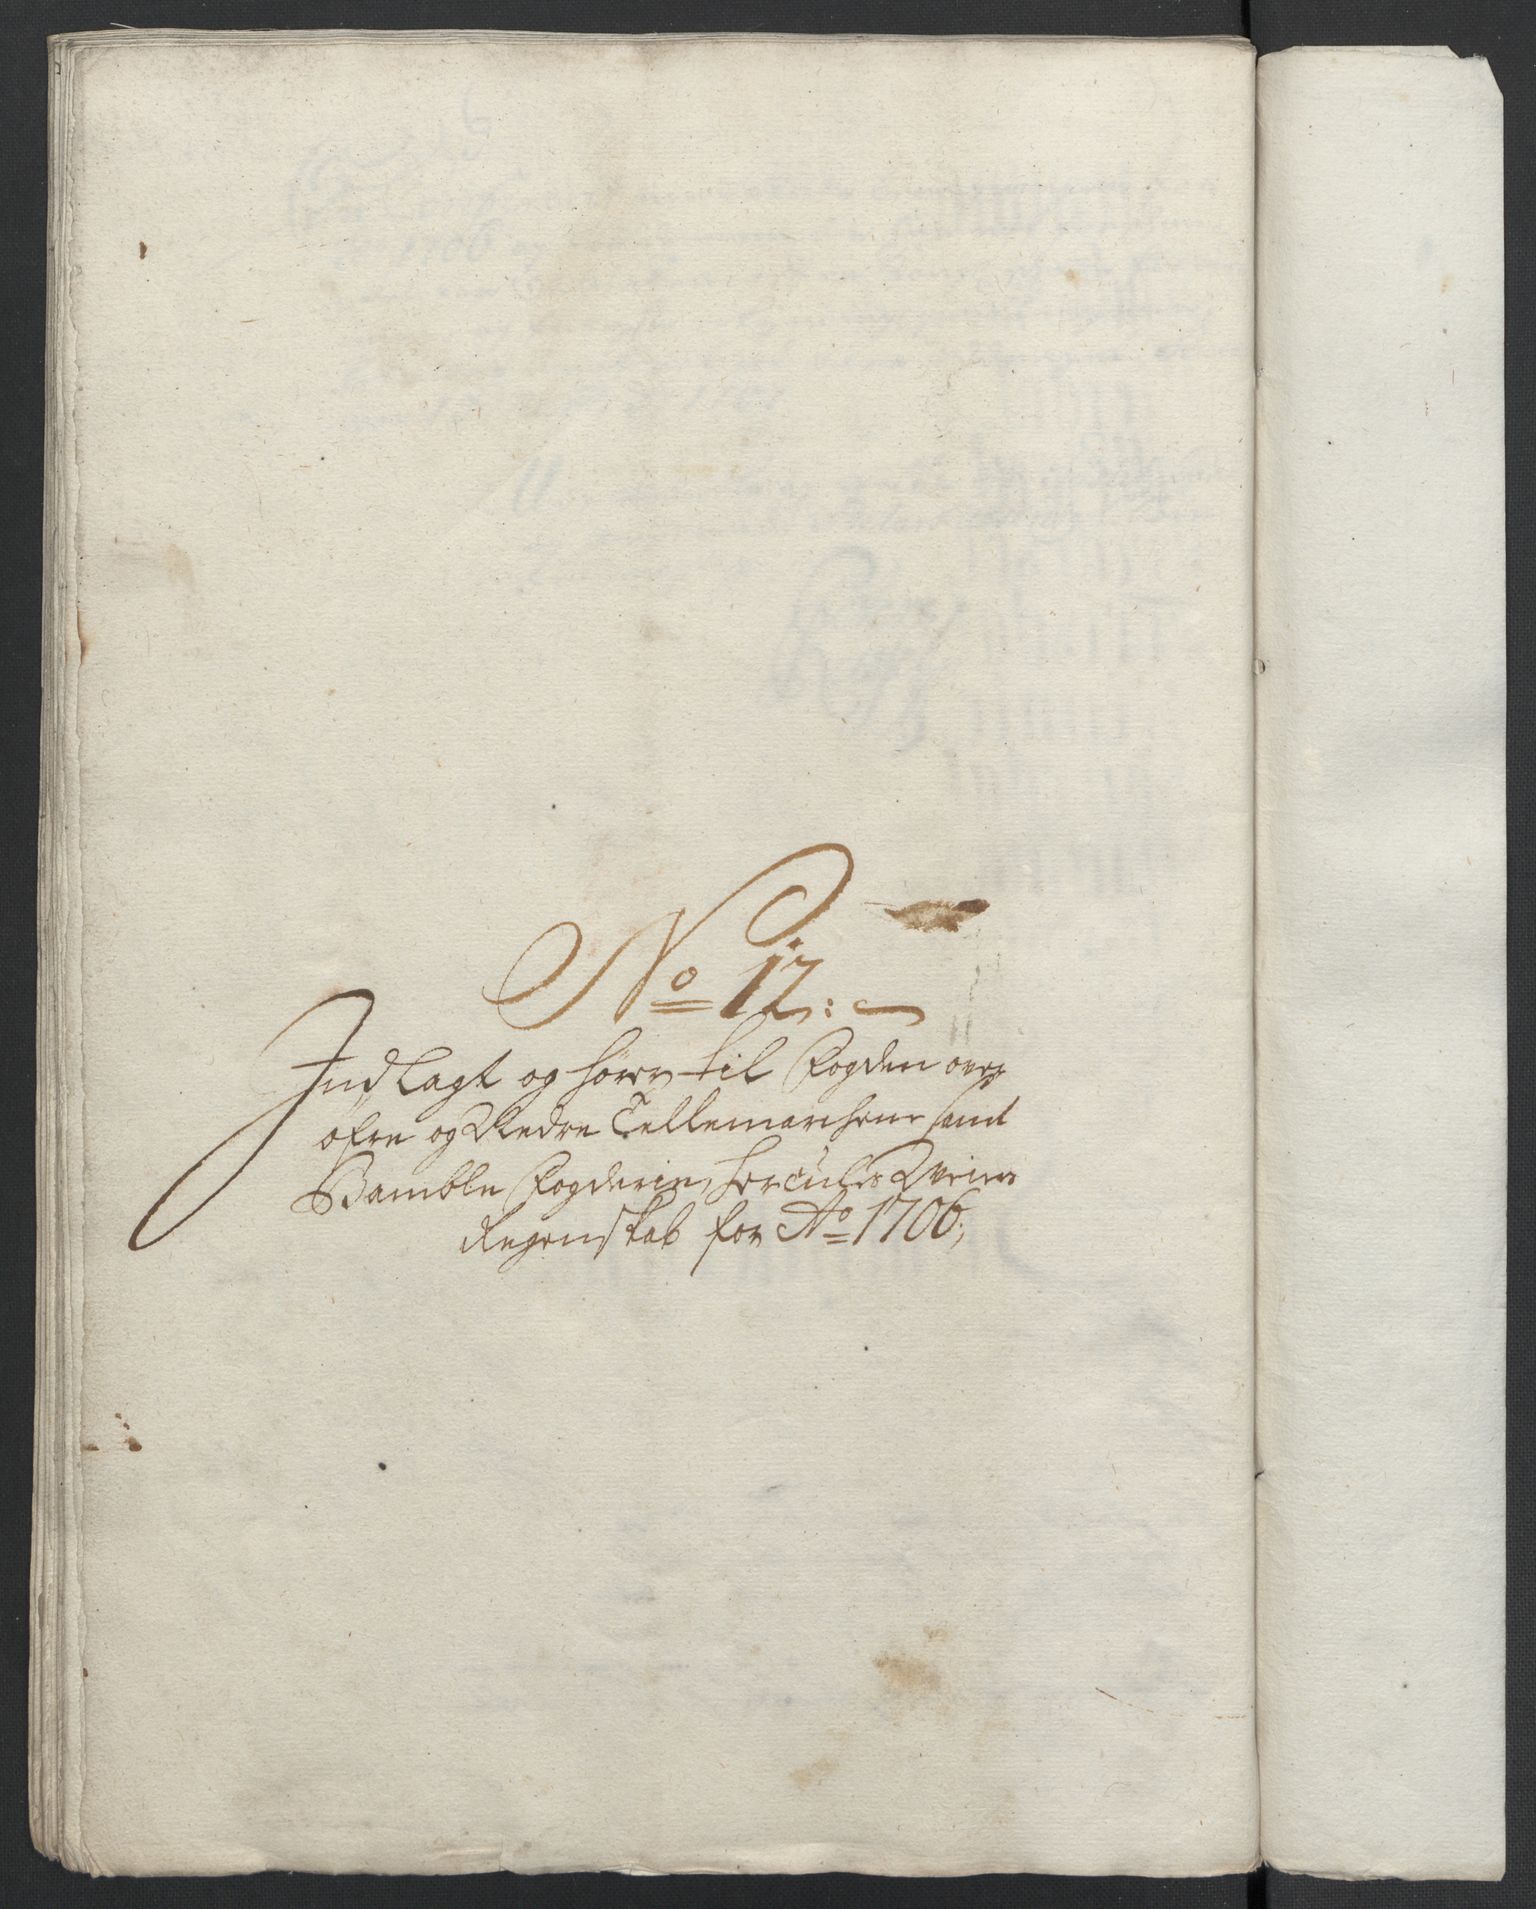 No 12:
Indlagt og hører til Fogden over
øfre og Nedre Tellemarchens samt
Bamble Fogderie, Hercules Weiers
Regenskab for Ao 1706;